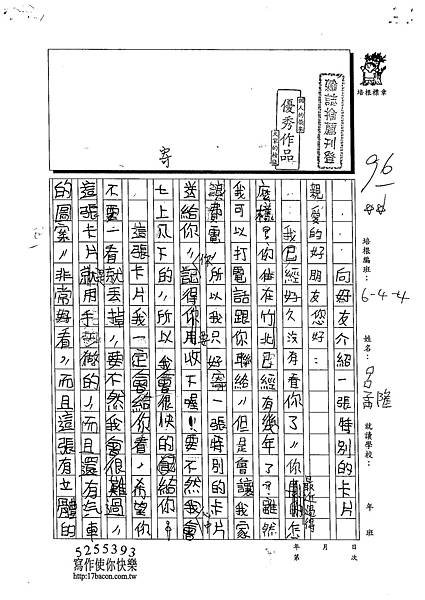 向好友介紹一張特別的卡片
親愛的好朋友您好:
我已經好久沒有看你了,你最近過得怎
麼樣?你住在竹北已經有幾年了?雖然
我可以打電話跟你聯絡,但是會讓我家
浪費電,所以我只好寄一張特別的卡片
送給你,記得你要用收下喔!要不然我會
七上八下的,所以我會很快的寄給你。
這張卡片我一定會給你看,希望你
不要一看就丟掉,要不然我會很難過,
這張卡片就是用手做的,而且還有汽車
的圖案,非常好看,而且這張有立體的
寄
優秀作品
培根標章
96
培根編班:
6-4-4
姓名:
就讀學校:
年 班
年 月 日
第 次
5255393
寫作使你快樂
http://17bacon.com.tw/